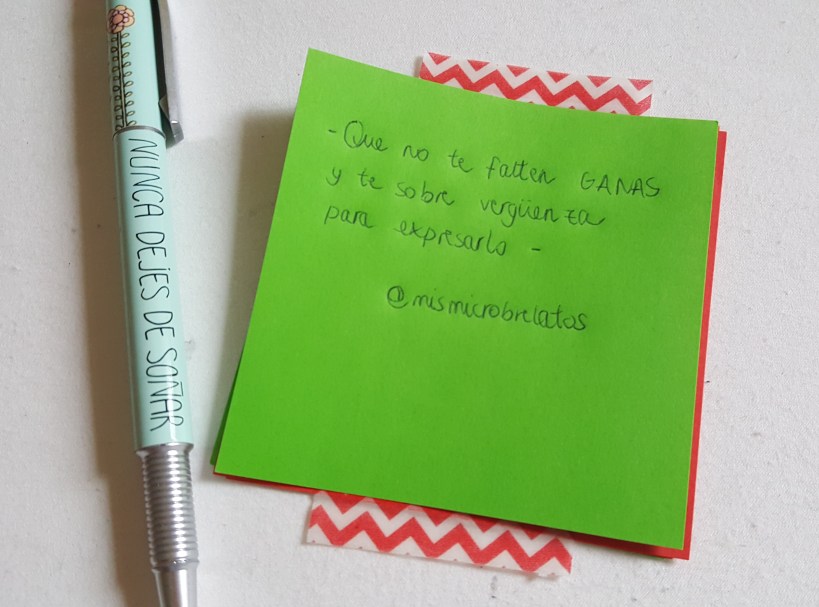 NUNCA DEJES DE SOÑAR
- Que no te falten GANAS
y te sobre vergüenza
para expresarlo -
@mismicrobrelatos